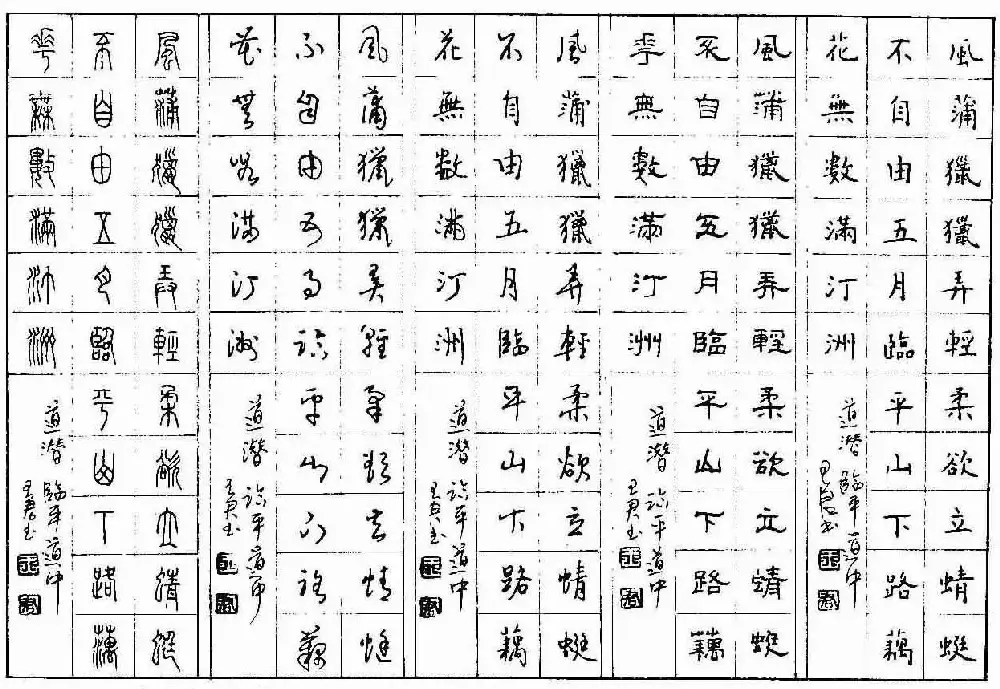 風蒲獵獵弄輕柔欲立蜻蜓
不自由五月臨平山下路藕
花無數滿汀洲
道潛 臨平道中
風蒲獵獵弄輕柔欲立蜻蜓
不自由五月臨平山下路藕
花無數滿汀洲
道潛 臨平道中
風蒲獵獵弄輕柔欲立蜻蜓
不自由五月臨平山下路藕
花無數滿汀洲
道潛 臨平道中
風蒲獵獵弄輕柔欲立蜻蜓
不自由五月臨平山下路藕
花無數滿汀洲
道潛 臨平道中
風蒲獵獵弄輕柔欲立蜻蜓
不自由五月臨平山下路藕
花無數滿汀洲
道潛 臨平道中